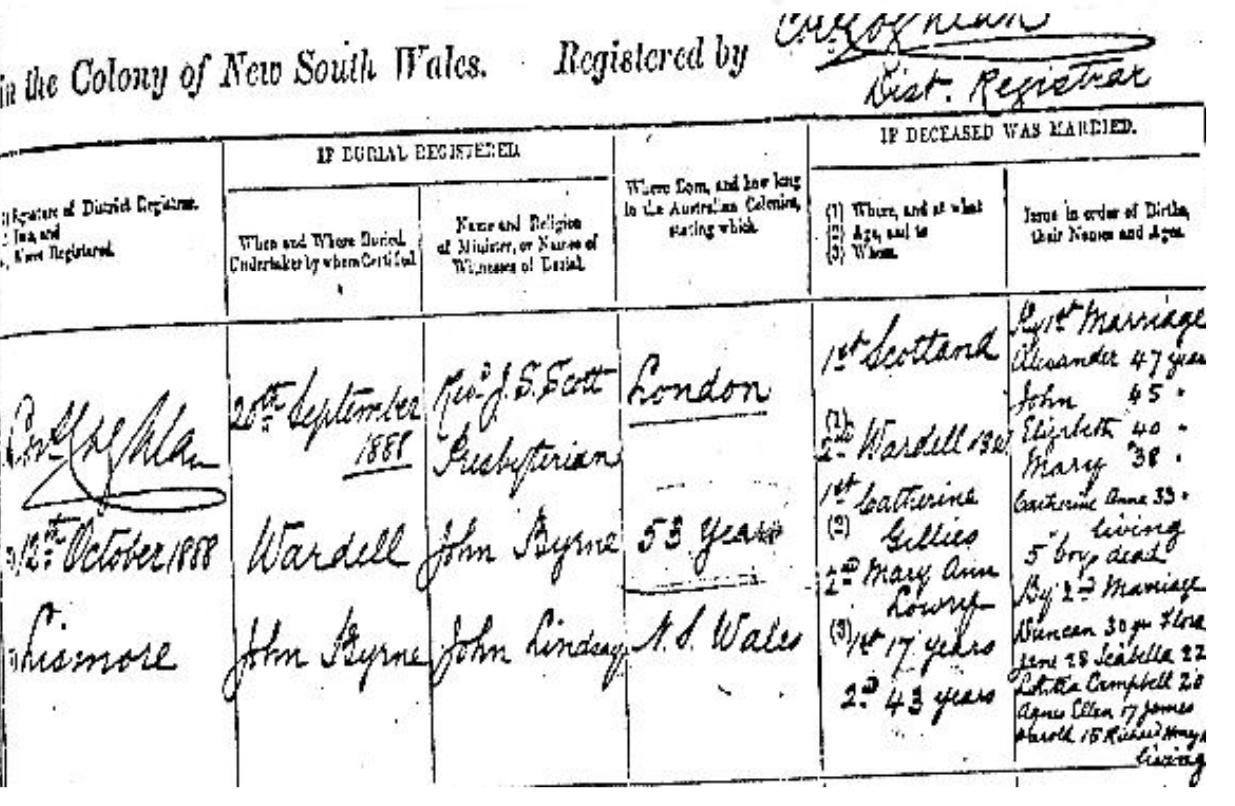 in the Colony of New South Wales. Registered by
Dist. Registrar
IF BURIAL REGISTERED.
IF DECEASED WAS MARRIED.
Signature of District Registrar.
and
Where Registered.
When and Where Buried.
Undertaker by whom Certified.
Name and Religion
of Minister, or Names of
Witnesses of Burial.
Where Born, and how long
in the Australian Colonies,
stating which.
(1) Where, and at what
(2) Age, and to
(3) Whom.
Issue in order of Births,
their Names and Ages.
12th October 1888
Lismore
20th September
1888
Wardell
John Byrne
Revd J. S. Scott
Presbyterian
John Byrne
John Lindsay
London
53 years
N. S. Wales
1st Scotland
(1)
2nd Wardell
1st Catherine
(2) Gillies
2nd Mary Ann
Lowry
(3) 1st 17 years
2nd 43 years
By 1st Marriage
Alexander 47 years
John 45 "
Elizabeth 40 "
Mary 38 "
Catherine Anne 33 "
living
5 boys dead
By 2nd Marriage
Duncan 30 yrs Flora
Jane 28 Isabella 22
Letitia Campbell 20
Agnes Ellen 17 James
Harold 15 Richard Henry
living